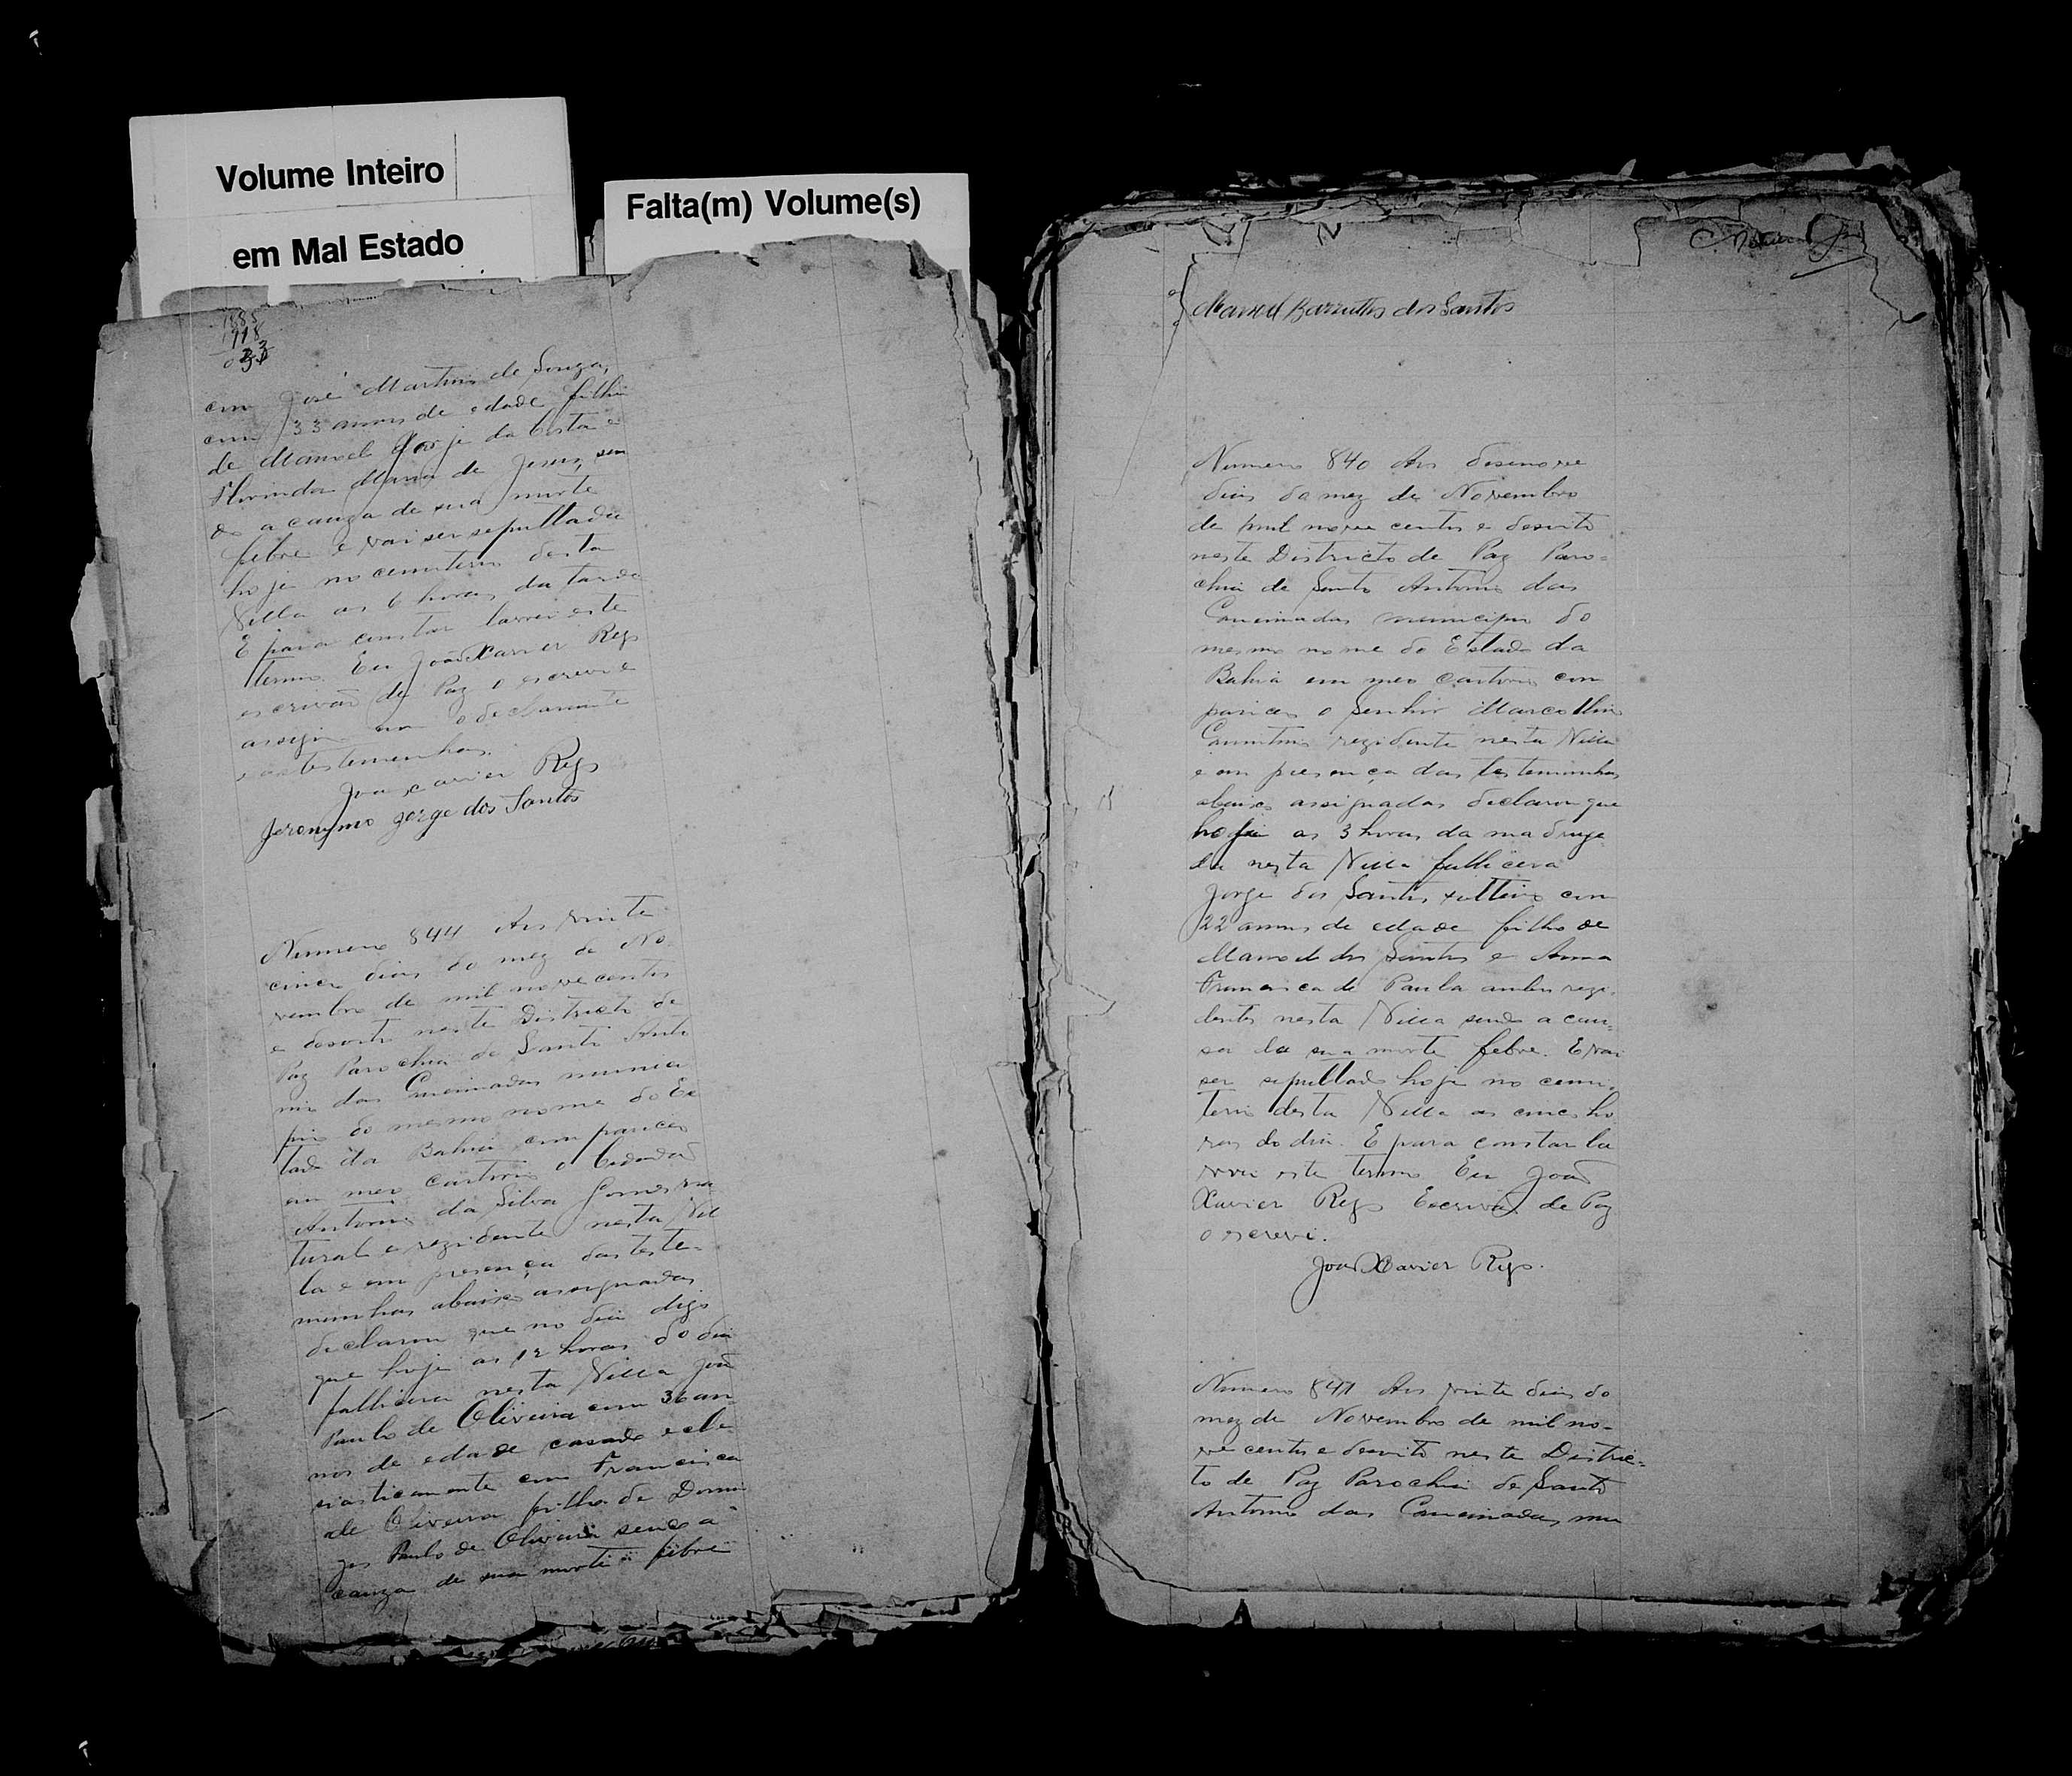 Volume Inteiro
em Mal Estado
Falta(m) Volume(s)
1885
118
com José Martins de Souza,
com 33 annos de edade filho
de Manoel Jorje da Costa e
Florinda Maria de Jesus, sen
do a cauza de sua morte
febre e vai ser sepultado
hoje no cemiterio desta
Villa as 6 horas da tarde
E para constar lavrei este
termo. Eu João Xavier Reys
escrivão de Paz o escrevi e
assigno com o declarante
e as testemunhas.
João Xavier Reys
Jeronymo Jorge dos Santos
Numero 844 Aos vinte
cinco dias do mez de No-
vembro de mil nove centos
e desoito neste Districto de
Paz Parochia de Santo Anto
nio das Queimadas munici
pio do mesmo nome do Es
tado da Bahia compareceo
em meo cartorio o Cidadão
Antonio da Silva Gomes na
tural e rezidente nesta Vil
la e em presença das teste-
munhas abaixo assignadas
declarou que no dia digo
que hoje as 12 horas do dia
fallicera nesta Villa João
Paulo de Oliveira com 36 an-
nos de edade casado ecle-
siasticamente com Francisca
de Oliveira filho de Domin
gos Paulo de Oliveira sendo a
cauza de sua morte febre
Manoel Barretto dos Santos
Numero 840 Aos desenove
dias do mez de Novembro
de mil nove centos e desoito
neste Districto de Paz Paro-
chia de Santo Antonio das
Queimadas municipio do
mesmo nome do Estado da
Bahia em meo cartorio com
pareceo o Senhor Marcollino
rezidente nesta Villa
e em presença das testemunhas
abaixo assignadas declarou que
hoje as 3 horas da madruga
da nesta Villa fallicera
Jorge dos Santos solteiro com
22 annos de edade filho de
Manoel dos Santos e Anna
Francisca de Paula ambos rezi-
dentes nesta Villa sendo a cau-
sa da sua morte febre. E vai
ser sepultado hoje no cemi-
terio desta Villa as cinco ho
ras do dia. E para constar la
vrei este termo Eu João
Xavier Reys Escrivão de Paz
o escrevi.
João Xavier Reys.
Numero 841 Aos vinte dias do
mez de Novembro de mil no-
ve centos e desoito neste Distric-
to de Paz Parochia de Santo
Antonio das Queimadas mu